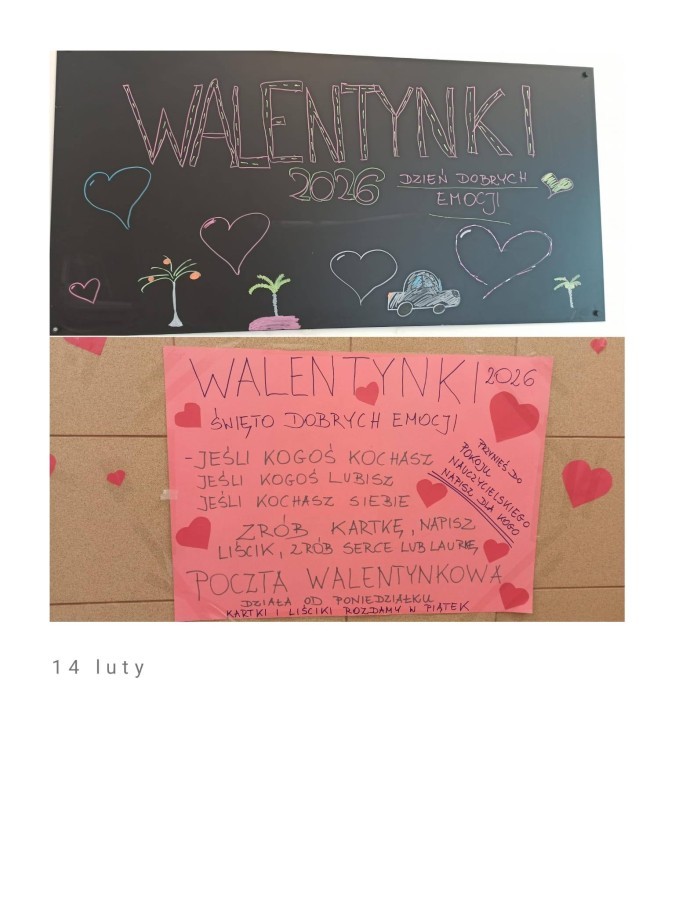 WALENTYNKI
2026 DZIEŃ DOBRYCH
EMOCJI
WALENTYNKI 2026
ŚWIĘTO DOBRYCH EMOCJI
- JEŚLI KOGOŚ KOCHASZ
JEŚLI KOGOŚ LUBISZ
JEŚLI KOCHASZ SIEBIE
PRZYNIEŚ DO
POKOJU
NAUCZYCIELSKIEGO
NAPISZ DLA KOGO
ZRÓB KARTKĘ, NAPISZ
LIŚCIK, ZRÓB SERCE LUB LAURKĘ
POCZTA WALENTYNKOWA
DZIAŁA OD PONIEDZIAŁKU
KARTKI I LIŚCIKI ROZDAMY W PIĄTEK
14 luty